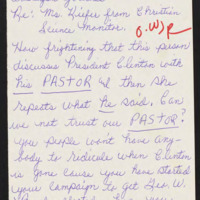 Re: Ms. Kiefer from Christian
Science Monitor.
How frightening that this person
discusses President Clinton with
his PASTOR & then she
repeats what he said. Can
we not trust our PASTOR?
You people won't have any-
body to ridicule when Clinton
is gone cause you have started
your campaign to get Geo. W.